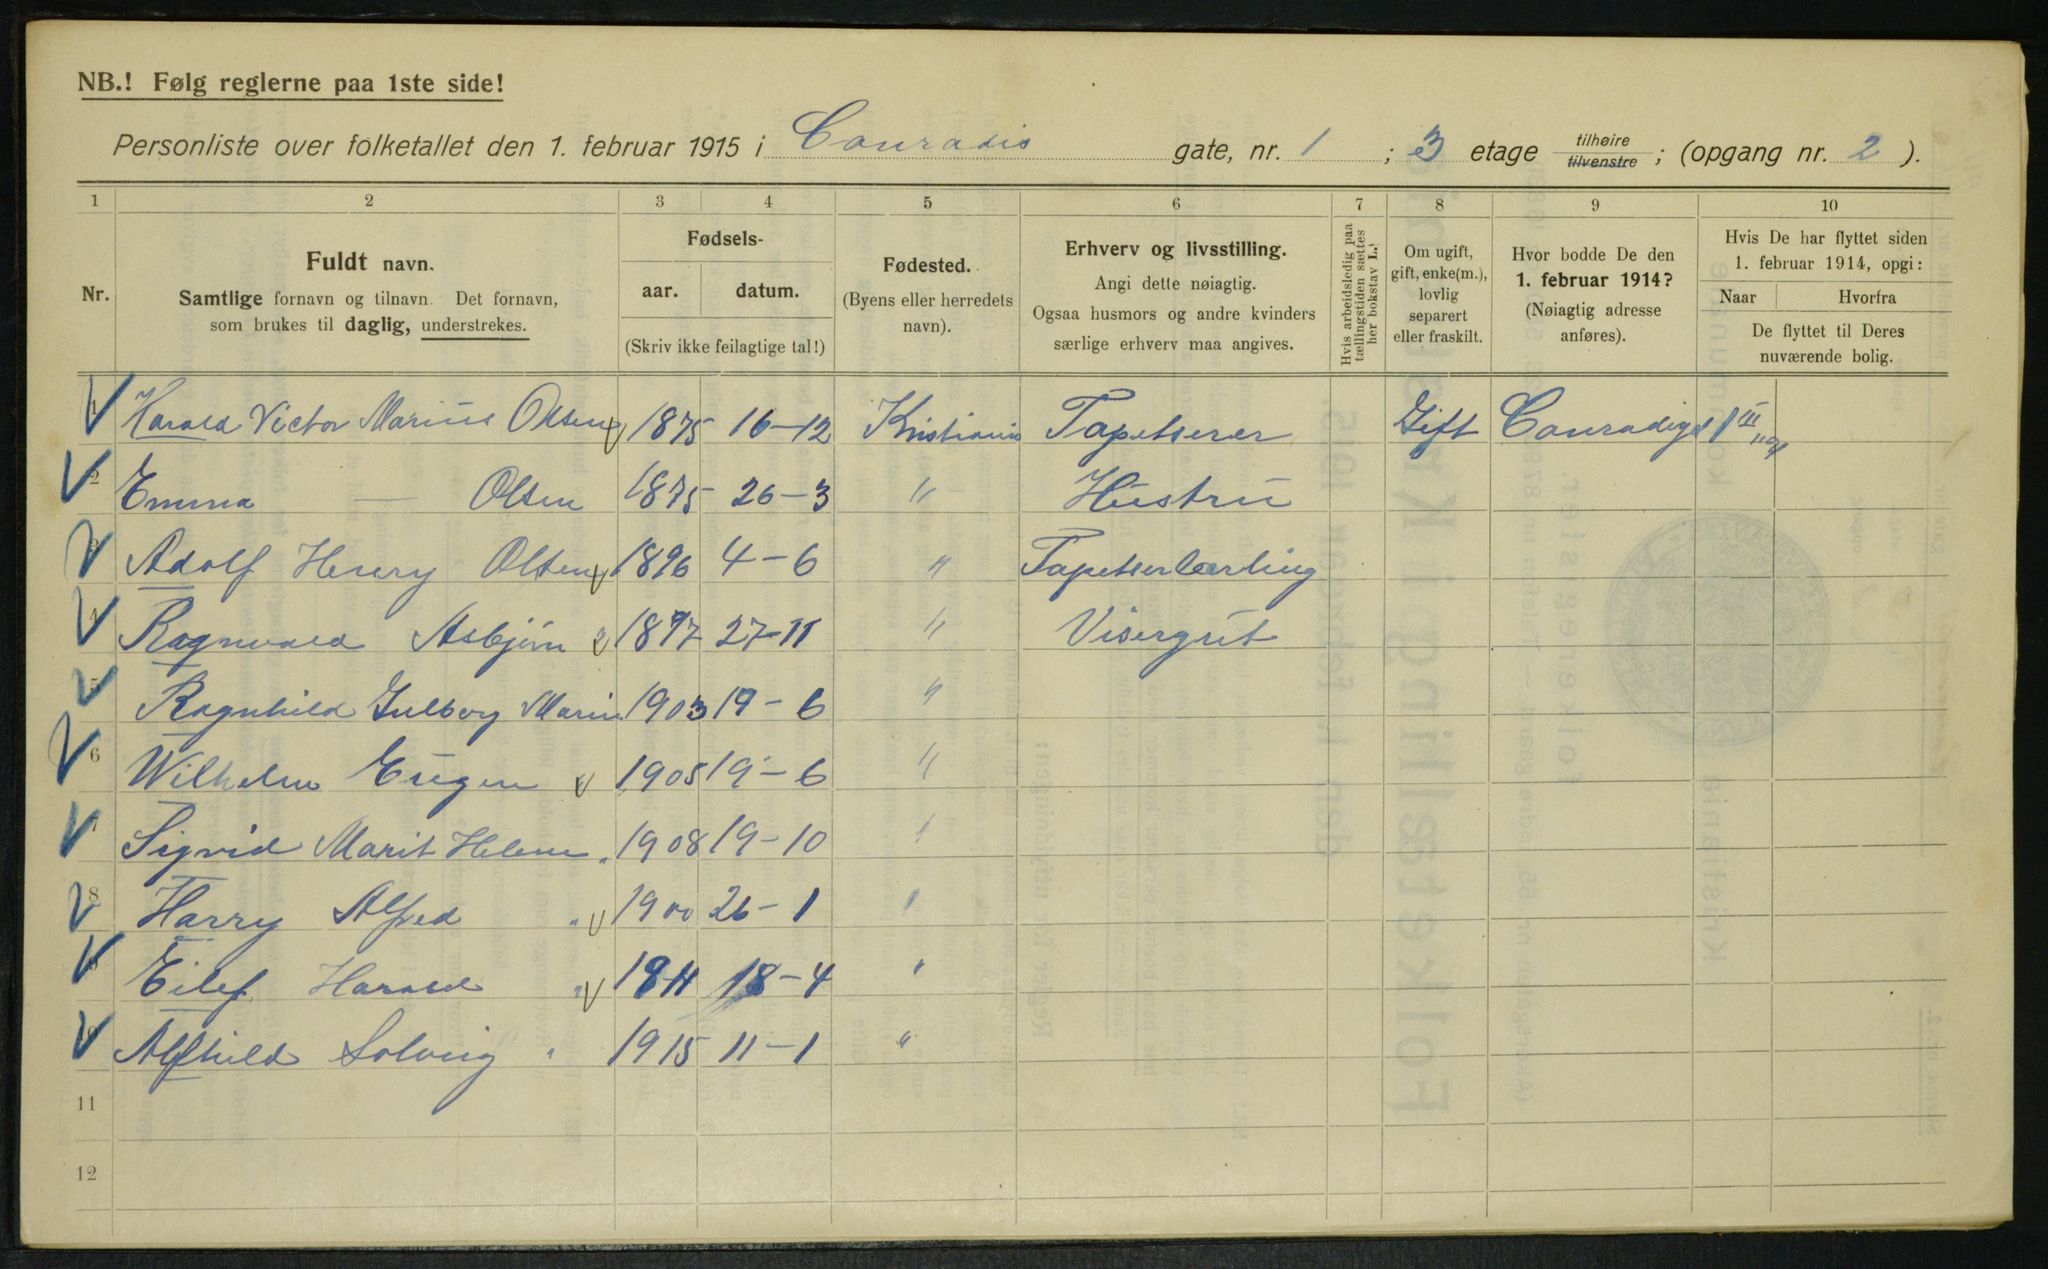 NB.! Følg reglerne paa 1ste side!
Personliste over folketallet den 1. februar 1915 i Conradis gate, nr. 1 ; 3 etage tilhøire tilvenstre ; (opgang nr. 2 ).
1 2 3 4 5 6 7 8 9 10
Nr.
Fuldt navn.
Samtlige fornavn og tilnavn. Det fornavn,
som brukes til daglig, understrekes.
Fødsels-
aar. datum.
(Skriv ikke feilagtige tal!)
Fødested.
(Byens eller herredets
navn).
Erhverv og livsstilling.
Angi dette nøiagtig.
Ogsaa husmors og andre kvinders
særlige erhverv maa angives.
Hvis arbeidsledig paa
tællingstiden sættes
her bokstav L.
Om ugift,
gift, enke(m.),
lovlig
separert
eller fraskilt.
Hvor bodde De den
1. februar 1914?
(Nøiagtig adresse
anføres).
Hvis De har flyttet siden
1. februar 1914, opgi:
Naar Hvorfra
De flyttet til Deres
nuværende bolig.
1 Harald Victor Marius Olsen 1875 16-12 Kristiania Tapetserer Gift Conradigt 1 III
2 Emma — Olsen 1875 26-3 " Hustru
3 Adolf Henry Olsen 1896 4-6 " Tapetserlærling
4 Ragnvald Asbjørn 1897 27-11 " Visergut
5 Ragnhild Gulborg Marie 1903 19-6 "
6 Wilhelm Eugen 1905 19-6 "
7 Sigrid Marit Helene " 1908 19-10 "
8 Harry Alfred " 1900 26-1 "
9 Eilef Harald " 1911 18-4 "
10 Alfhild Solveig " 1915 11-1 "
11
12